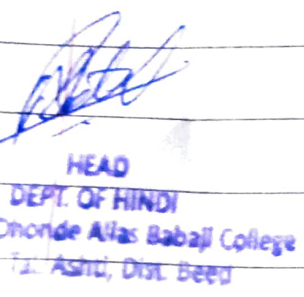 HEAD
DEPT. OF HINDI
Dhonde Alias Babaji College
Ashti, Dist. Beed